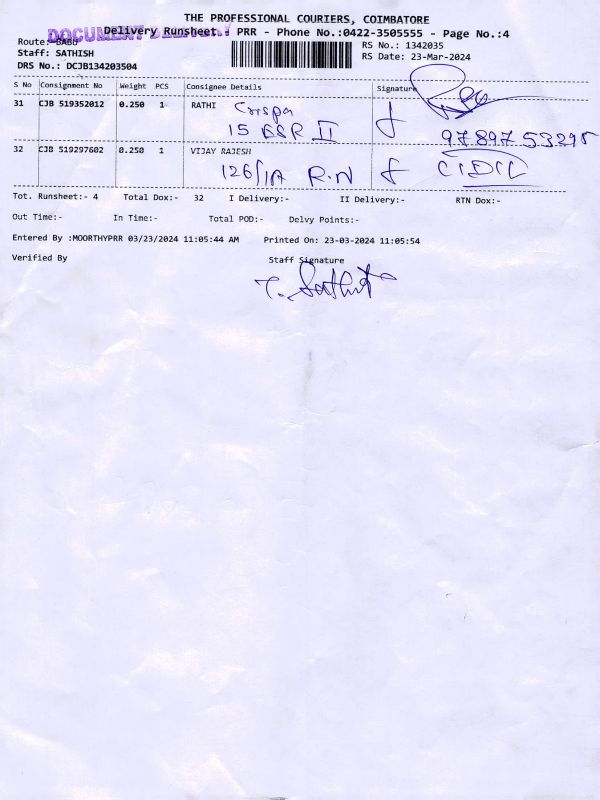 THE PROFESSIONAL COURIERS, COIMBATORE
Delivery Runsheet : PRR - Phone No.:0422-3505555 - Page No.:4
DOCUMENT
Route:-BABU
Staff: SATHISH
DRS No.: DCJB134203504
RS No.: 1342035
RS Date: 23-Mar-2024
S No Consignment No Weight PCS Consignee Details Signature
31 CJB 519352012 0.250 1 RATHI Crispa
15 BSR II
97897 53295
32 CJB 519297602 0.250 1 VIJAY RAJESH
126/1A R.N
Tot. Runsheet:- 4 Total Dox:- 32 I Delivery:- II Delivery:- RTN Dox:-
Out Time:- In Time:- Total POD:- Delvy Points:-
Entered By :MOORTHYPRR 03/23/2024 11:05:44 AM Printed On: 23-03-2024 11:05:54
Verified By Staff Signature
T. Sathish